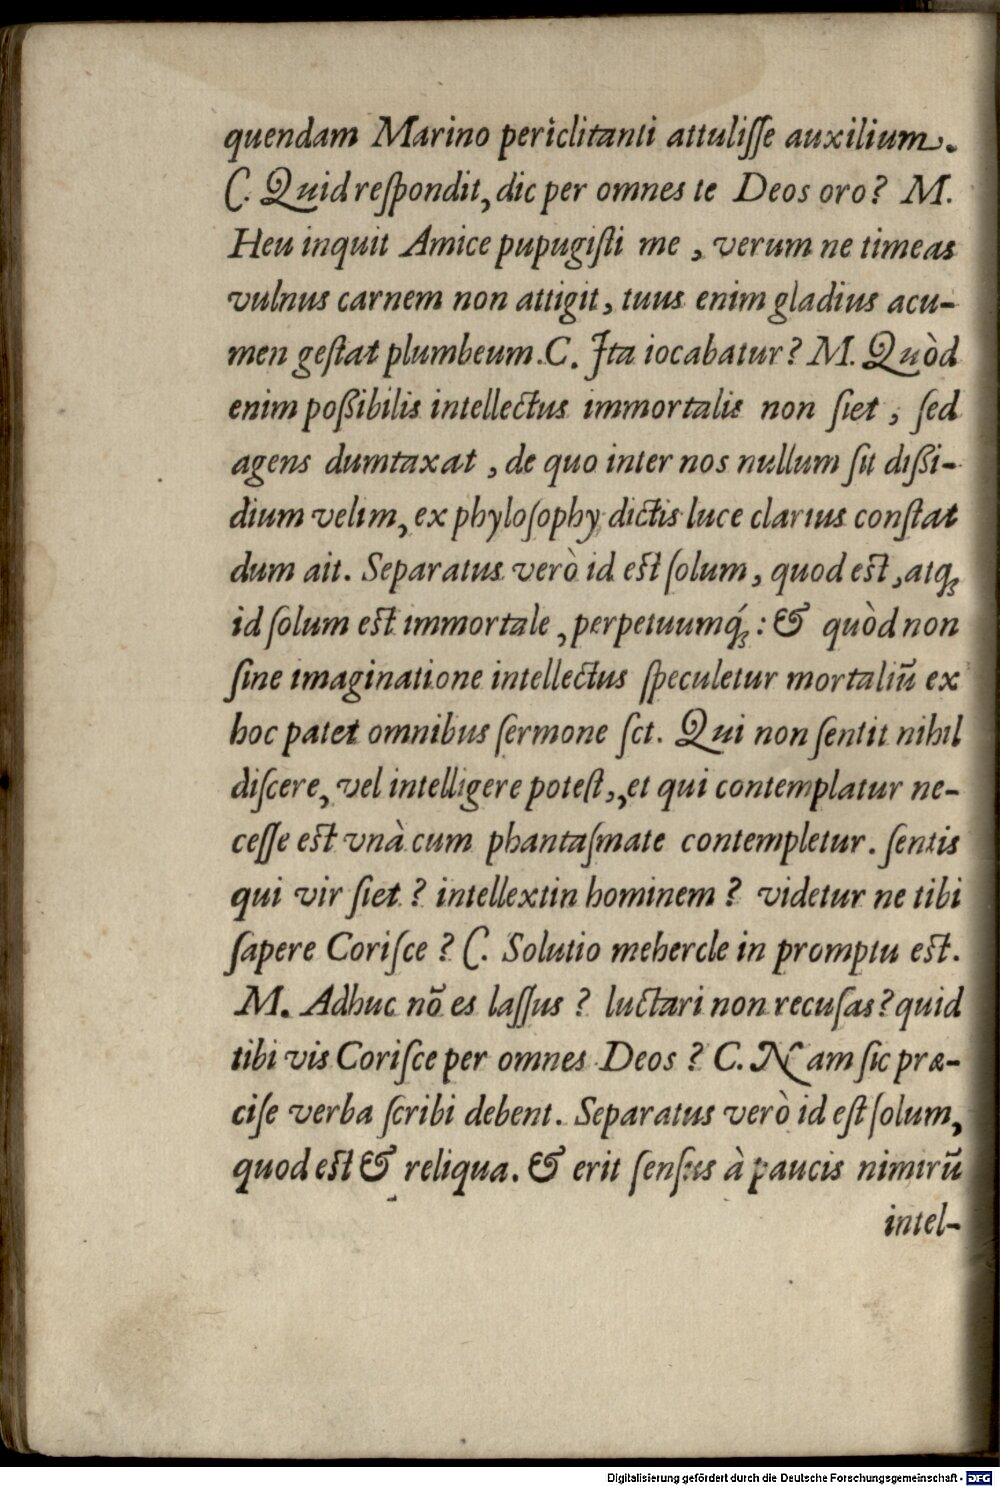 quendam Marino periclitanti attuliſſe auxilium.
C. Quid reſpondit, dic per omnes te Deos oro? M.
Heu inquit Amice pupugiſti me, verum ne timeas
vulnus carnem non attigit, tuus enim gladius acu-
men geſtat plumbeum. C. Ita iocabatur? M. Quòd
enim poßibilis intellectus immortalis non ſiet, ſed
agens dumtaxat, de quo inter nos nullum ſit dißi-
dium velim, ex phyloſophy dictis luce clarius conſtat
dum ait. Separatus verò id eſt ſolum, quod eſt, atq́ꝫ
id ſolum eſt immortale, perpetuumq́ꝫ: & quòd non
ſine imaginatione intellectus ſpeculetur mortaliũ ex
hoc patet omnibus ſermone ſct. Qui non ſentit nihil
diſcere, vel intelligere poteſt,,et qui contemplatur ne-
ceſſe eſt vnà cum phantaſmate contempletur. ſentis
qui vir ſiet? intellextin hominem? videtur ne tibi
ſapere Coriſce? C. Solutio mehercle in promptu eſt.
M. Adhuc nõ es laſſus? luctari non recuſas? quid
tibi vis Coriſce per omnes Deos? C. Nam ſic præ-
ciſe verba ſcribi debent. Separatus verò id eſt ſolum,
quod eſt & reliqua. & erit ſenſus à paucis nimirũ
intel-
Digitalisierung gefördert durch die Deutsche Forschungsgemeinschaft - DFG